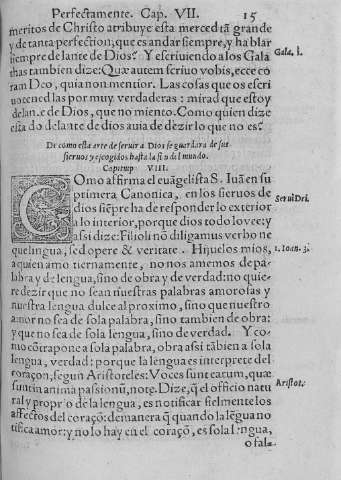 Perfectamente. Cap. VII. 15
meritos de Christo atribuye esta merced tã grande
y de tanta perfection, que es andar siempre, y hablar
siempre delante de Dios? Y escriuiendo a los Gala Gala. 1.
thas tambien dize: Quæ autem scriuo vobis, ecce co
ram Deo, quia non mentior. Las cosas que os escri
uo tened las por muy verdaderas: mirad que estoy
delante de Dios, que no miento. Como quien dize
estado delante de dios auia de dezir lo que no es?
De como esta arte de seruir a Dios se guardara de sus
sieruos y escogidos hasta la fin del mundo.
Capitulo VIII.
COmo affirma el euãgelista S. Iuã en su
primera Canonica, en los sieruos de Serui Dei.
dios siẽpre ha de responder lo exterior
a lo interior, porque dios todo lo vee: y
assi dize: Filioli nõ diligamus verbo ne
que lingua, sed opere & veritate. Hijuelos mios, 1. Ioan. 3.
a quien amo tiernamente, no nos amemos de pa-
labra y de lengua, sino de obra y de verdad: no quie-
re dezir que no sean nuestras palabras amorosas y
nuestra lengua dulce al proximo, sino que nuestro
amor no sea de sola palabra, sino tambien de obra:
y que no sea de sola lengua, sino de verdad. Y co-
mo cõtrapone a sola palabra, obra assi tãbien a sola
lengua, verdad: porque la lengua es interprete del
coraçon, segun Aristoteles: Voces sunt earum, quæ
sunt in anima passionũ, notę. Dize, q̃ el officio natu Aristot.
ral y proprio de la lengua, es notificar fielmente los
affectos del coraçõ: de manera q̃ quando la lẽgua no
tifica amor: y no lo hay en el coraçõ, es sola lengua,
o fal-